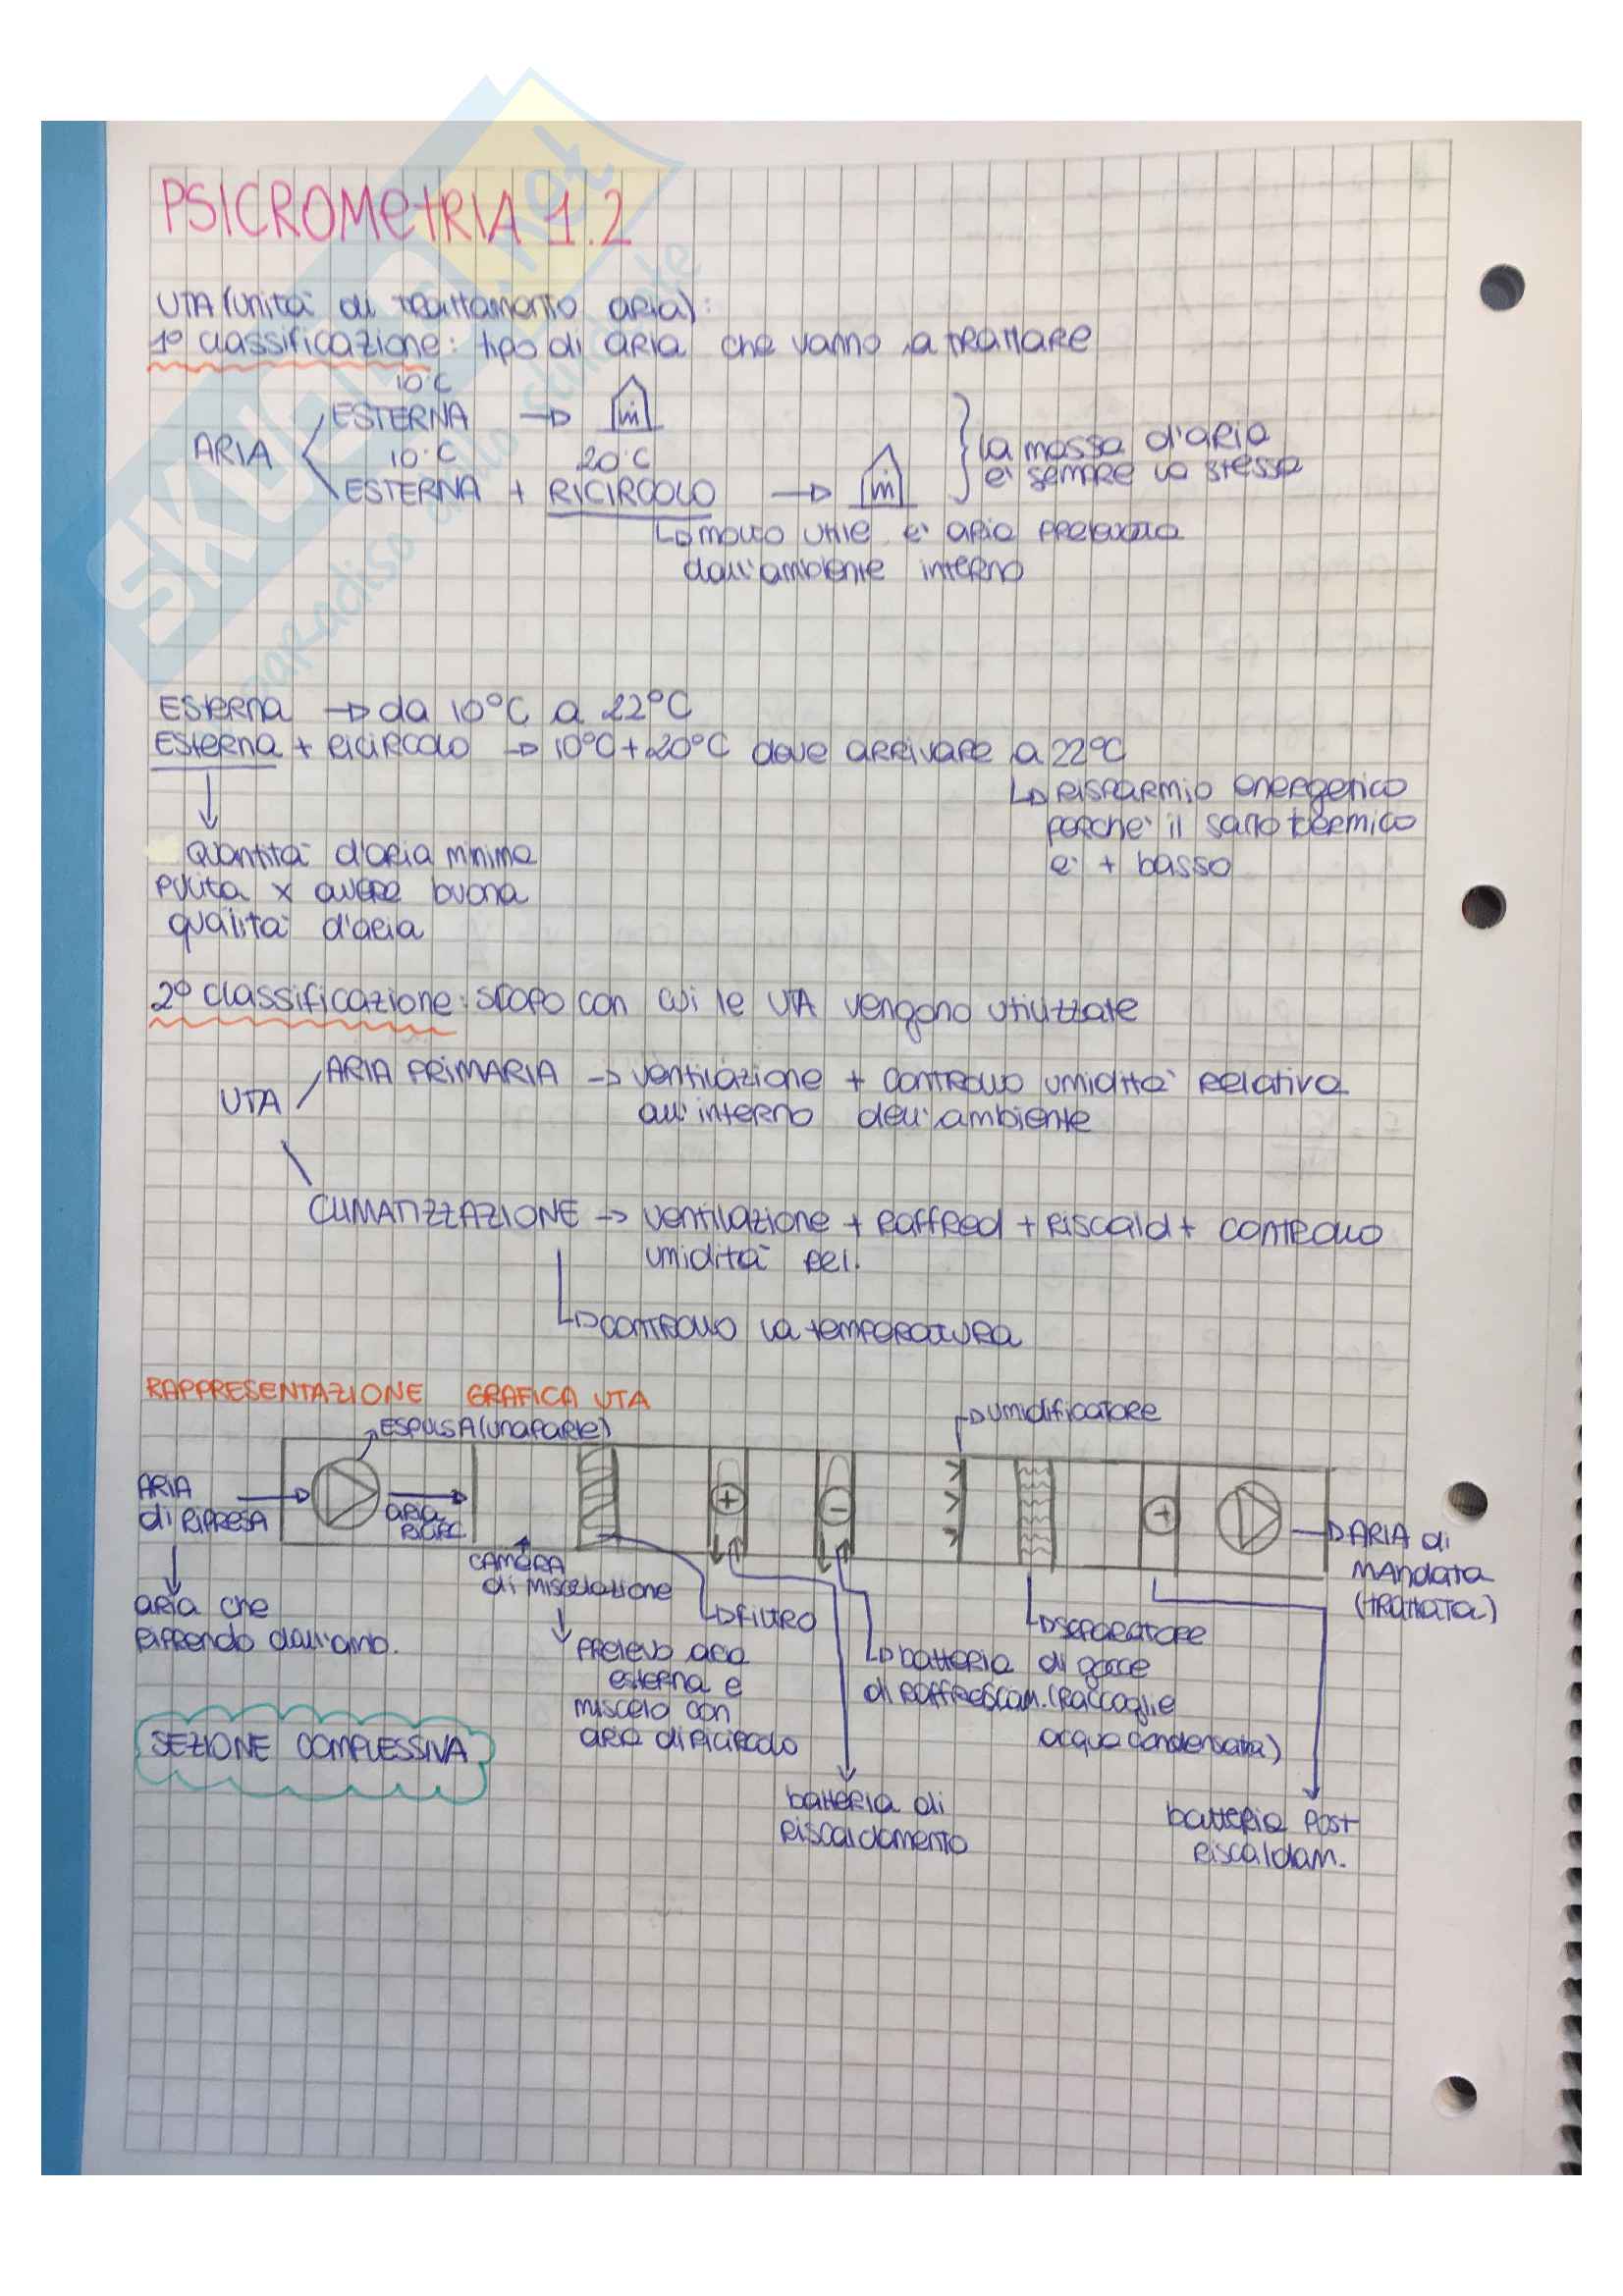 PSICROMETRIA 1.2
UTA (unità di trattamento aria):
1° classificazione: tipo di aria che vanno a trattare
10°C
ESTERNA → ṁ
ARIA
10°C 20°C
ESTERNA + RICIRCOLO → ṁ
la massa d'aria
è sempre la stessa
molto utile è aria prelevata
dall'ambiente interno
Esterna → da 10°C a 22°C
Esterna + ricircolo → 10°C + 20°C deve arrivare a 22°C
risparmio energetico
perchè il salto termico
è + basso
quantità d'aria minima
pulita x avere buona
qualità d'aria
2° classificazione: scopo con cui le UTA vengono utilizzate
ARIA PRIMARIA → ventilazione + controllo umidità relativa
all'interno dell'ambiente
UTA
CLIMATIZZAZIONE → ventilazione + raffred + riscald + controllo
umidità rel.
controllo la temperatura
RAPPRESENTAZIONE GRAFICA UTA
umidificatore
ESPULSA (una parte)
ARIA
di RIPRESA
ARIA
RICIRC.
+
-
+
ARIA di
MANDATA
(TRATTATA)
CAMERA
di miscelazione
aria che
riprendo dall'amb.
FILTRO
prelevo aria
esterna e
miscelo con
aria di ricircolo
SEPARATORE
di gocce
(raccoglie
acqua condensata)
batteria
di raffrescam.
SEZIONE COMPLESSIVA
batteria di
riscaldamento
batteria post
riscaldam.
SKUOLA.net
paradiso dello studente